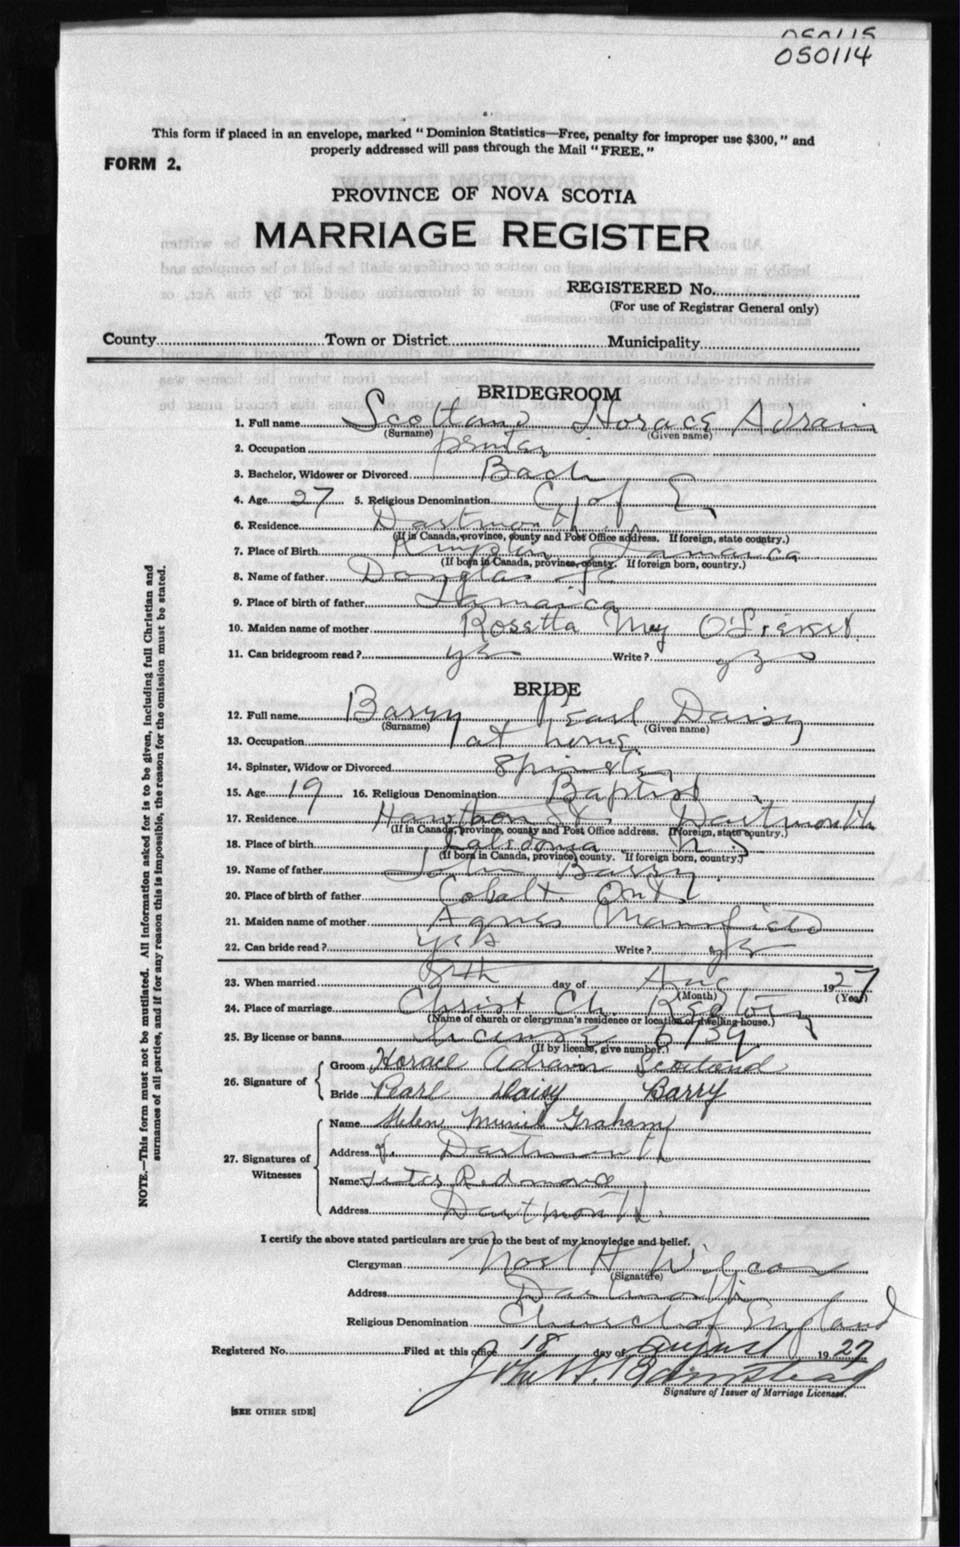 050115
050114
This form if placed in an envelope, marked "Dominion Statistics—Free, penalty for improper use $300," and
properly addressed will pass through the Mail "FREE."
FORM 2.
PROVINCE OF NOVA SCOTIA
MARRIAGE REGISTER
REGISTERED No.
(For use of Registrar General only)
County Town or District Municipality
BRIDEGROOM
1. Full name Scotland Horace Adrain
(Surname) (Given name)
2. Occupation
3. Bachelor, Widower or Divorced Bach
4. Age 27 5. Religious Denomination C of E
6. Residence Dartmouth
(If in Canada, province, county and Post Office address. If foreign, state country.)
7. Place of Birth Kingston Jamaica
(If born in Canada, province, county. If foreign born, country.)
8. Name of father Douglas
9. Place of birth of father Jamaica
10. Maiden name of mother Rosetta May
11. Can bridegroom read? yes Write? yes
BRIDE
12. Full name Barry Pearl Daisy
(Surname) (Given name)
13. Occupation at home
14. Spinster, Widow or Divorced Spinster
15. Age 19 16. Religious Denomination Baptist
17. Residence Hawthorn St. Dartmouth
(If in Canada, province, county and Post Office address. If foreign, state country.)
18. Place of birth Caledonia N S
(If born in Canada, province, county. If foreign born, country.)
19. Name of father John Barry
20. Place of birth of father Cobalt. Ont
21. Maiden name of mother Agnes Mansfield
22. Can bride read? yes Write? yes
23. When married 8th day of Aug 1927
(Month) (Year)
24. Place of marriage Christ Ch. Rectory
(Name of church or clergyman's residence or location of dwelling house.)
25. By license or banns License 6739
(If by license, give number.)
26. Signature of
Groom Horace Adrain Scotland
Bride Pearl Daisy Barry
27. Signatures of Witnesses
Name Helen Muriel Graham
Address Dartmouth
Name Redmond
Address Dartmouth.
I certify the above stated particulars are true to the best of my knowledge and belief.
Clergyman Noel H Wilcox
(Signature)
Address Dartmouth
Religious Denomination Church of England
Registered No. Filed at this office 18 day of August 1927
Signature of Issuer of Marriage Licenses.
[SEE OTHER SIDE]
NOTE.—This form must not be mutilated. All information asked for is to be given, including full Christian and
surnames of all parties, and if for any reason this is impossible, the reason for the omission must be stated.